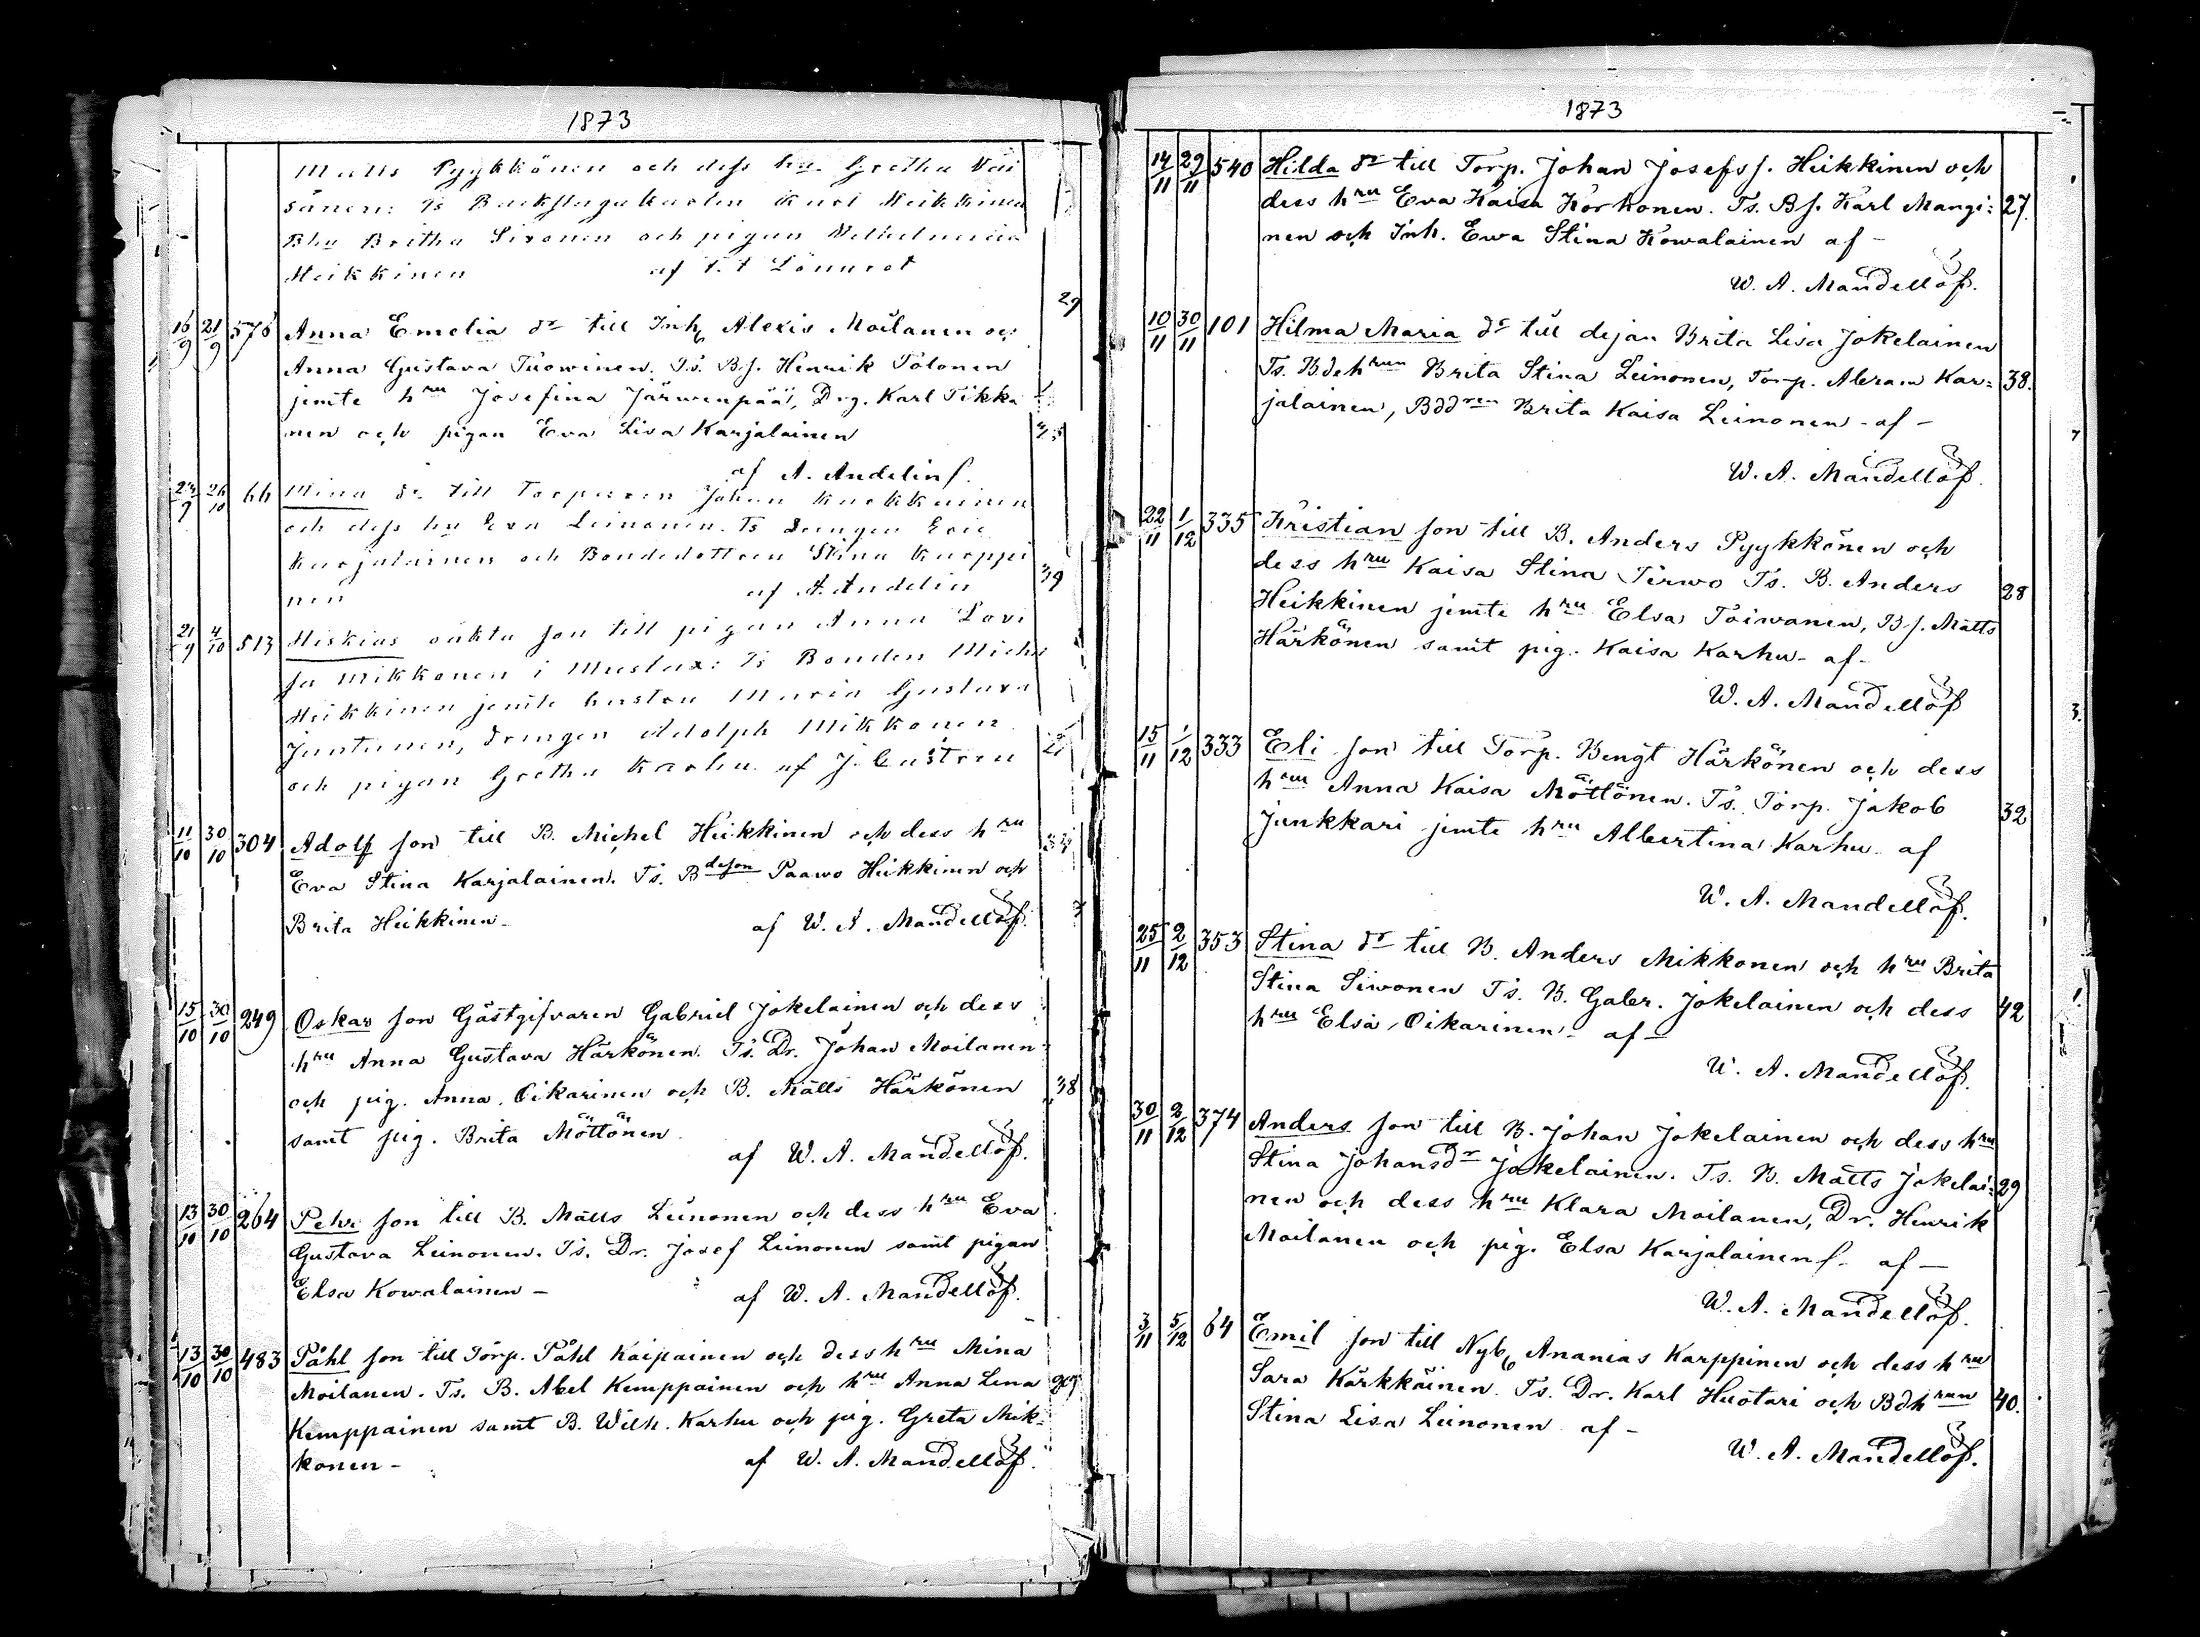 1873
Matts Pyykkönen och dess hu. Gretha Väi
sänen: Ts Backstugukarlen Karl Heikkinen
Bhu Britha Sivonen och pigan Vilhelmiina
Heikkinen af t.t Lönnrot
29
16/9 21/9 576 Anna Emelia dr till Inh. Alexis Moilanen och
Anna Gustava Tuowinen. Ts. B.s. Henrik Polonen
jemte hru Josefina Järwenpää, Drg. Karl Tikka
nen och pigan Eva Lisa Karjalainen
af A. Andelin
23/9 26/10 66 Mina dr till Torparen Johan Kurkkainen
och dess hu Eva Leinonen. Ts Drengen Eric
Karjalainen och Bondedottren Stina Karppi
nen af A. Andelin 39
21/9 4/10 513 Hiskias oäkta son till pigan Anna Lovi
sa Mikkonen i Musta: Ts Bonden Michel
Heikkinen jemte hustru Maria Gustava
Juntunen, drengen Adolph Mikkonen
och pigan Gretha Karhu af J. Castren
11/10 30/10 304 Adolf son till B. Michel Heikkinen och dess hru
Eva Stina Karjalainen. Ts. Bdeson Paawo Heikkinen och
Brita Heikkinen - af W. A. Mandellöf.
15/10 30/10 249 Oskar son Gästgifvaren Gabriel Jokelainen och dess
hru Anna Gustava Härkönen. Ts. Dr. Johan Moilanen
och pig. Anna Oikarinen och B. Matts Härkönen 38
samt pig. Brita Möttönen
af W. A. Mandellöf.
13/10 30/10 264 Pehr son till B. Matts Leinonen och dess hru Eva
Gustava Leinonen. Ts. Dr. Josef Leinonen samt pigan
Elsa Kowalainen - af W. A. Mandellöf.
13/10 30/10 483 Påhl son till Torp. Påhl Kaipainen och dess hru Mina
Moilanen. Ts. B. Abel Kemppainen och hru Anna Lena
Kemppainen samt B. Wilh. Karhu och pig. Greta Mik-
konen - af W. A. Mandellöf.
1873
14/11 29/11 540 Hilda dr till Torp. Johan Josefss. Heikkinen och
dess hru Eva Kaisa Korhonen. Ts. Bs. Karl Mangi: 27.
nen och Inh. Ewa Stina Kowalainen af -
W. A. Mandellöf.
10/11 30/11 101 Hilma Maria dr till dejan Brita Lisa Jokelainen
Ts. Bdehrun Brita Stina Leinonen, Torp. Abram Kar= 38.
jalainen, Bddren Brita Kaisa Leinonen - af -
W. A. Mandellöf.
22/11 1/12 335 Kristian son till B. Anders Pyykkönen och
dess hru Kaisa Stina Tirwo Ts. B. Anders 28
Heikkinen jemte hru Elsa Toiwanen, B.s. Matts
Härkönen samt pig. Kaisa Karhu - af -
W. A. Mandellöf
15/11 1/12 333 Eli son till Torp. Bengt Härkönen och dess
hru Anna Kaisa Möttönen. Ts. Torp. Jakob 32
Junkkari jemte hru Albertina Karhu. af
W. A. Mandellöf.
25/11 2/12 353 Stina dr till B. Anders Mikkonen och hru Brita
Stina Siwonen Ts. B. Gabr. Jokelainen och dess 42
hru Elsa Oikarinen - af -
W. A. Mandellöf.
30/11 2/12 374 Anders son till B. Johan Jokelainen och dess hru
Stina Johansdr Jokelainen. Ts. B. Matts Jokelai: 29
nen och dess hru Klara Moilanen, Dr. Henrik
Moilanen och pig. Elsa Karjalainen. af -
W. A. Mandellöf.
3/11 5/12 64 Emil son till Nyb. Ananias Karppinen och dess hru
Sara Kärkkäinen. Ts. Dr. Karl Huotari och Bdhrun 40.
Stina Lisa Leinonen af -
W. A. Mandellöf.